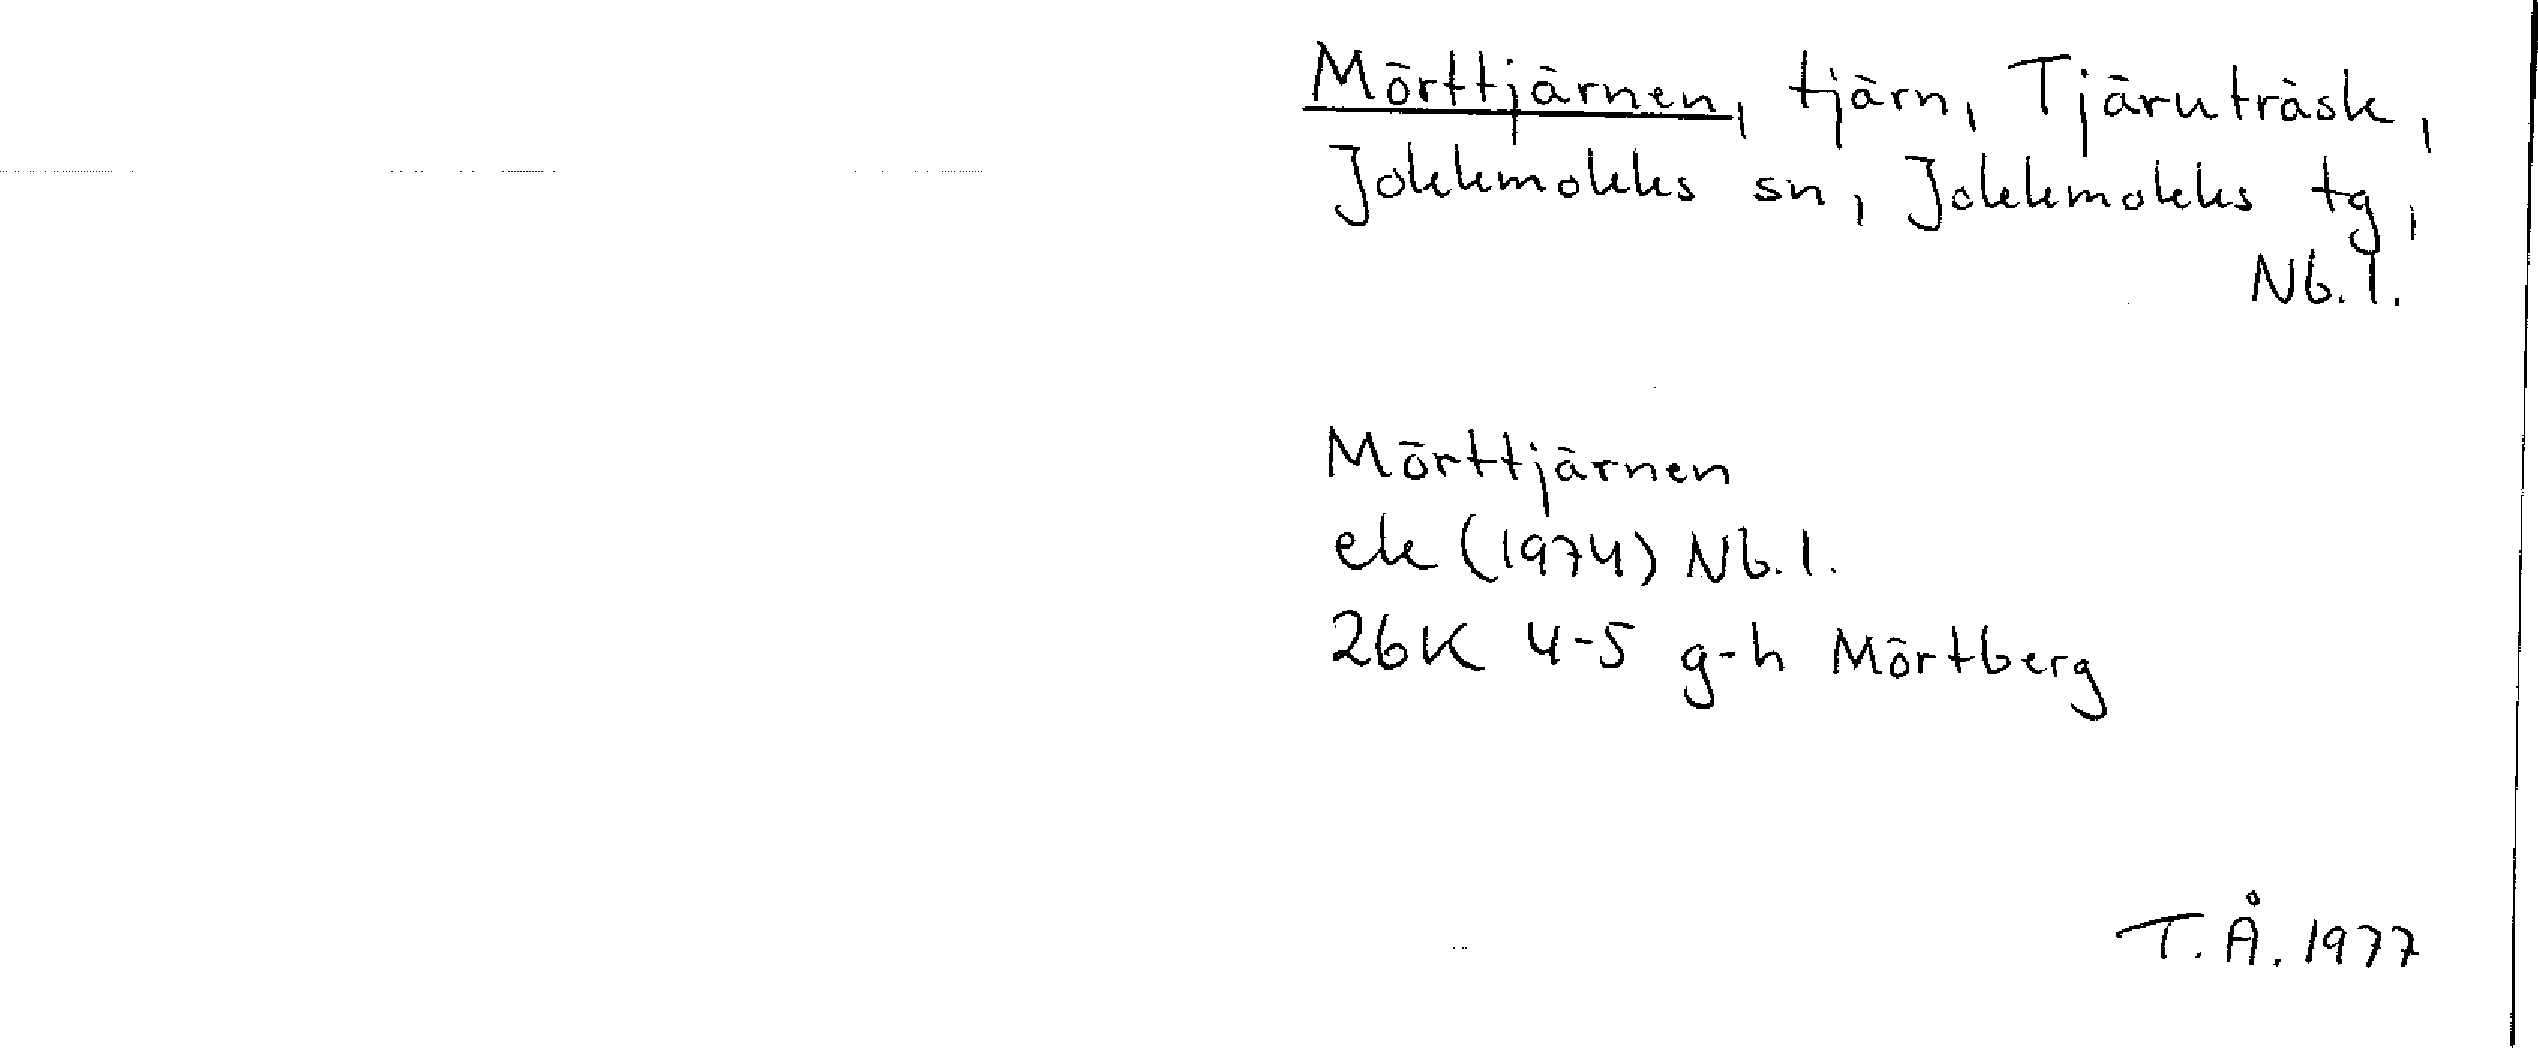 Mörttjärnen, tjärn, Tjäruträsk,
Jokkmokks sn, Jokkmokks tg,
Nb. l.
Mörttjärnen
ek (1974) Nb. l.
26K 4-5 g-h Mörtberg
T. Å. 1977